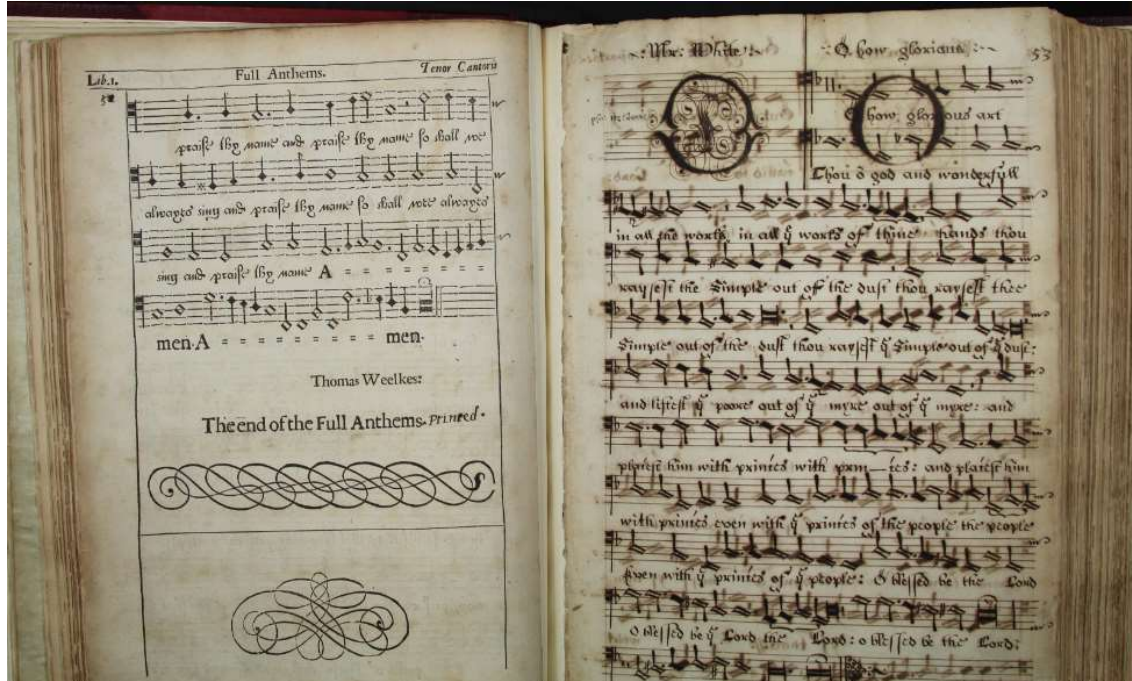 Lib. 1.
Full Anthems.
Tenor Cantoris
praise thy name and praise thy name so shall we
alwayes sing and praise thy name so shall wee alwayes
sing and praise thy name A = = = = = = = =
men. A = = = = = = = men.
Thomas Weelkes:
The end of the Full Anthems. Printed.
Mr: White:
O how glorious:
53
O how glorious art
Thou ô god and wonderfull
in all the works, in all yͤ works of thine hands thou
raysest the Simple out of the dust thou raysest thee
Simple out of the dust thou raysest yͤ Simple out of yͤ dust:
and liftest yͤ poore out of yͤ myre out of yͤ myre: and
placest him with princes with prin—ces: and placest him
with princes even with yͤ princes of the people the people
Even with yͤ princes of yͤ people: O blessed be the Lord
O blessed be yͤ Lord the Lord: o blessed be the Lord: